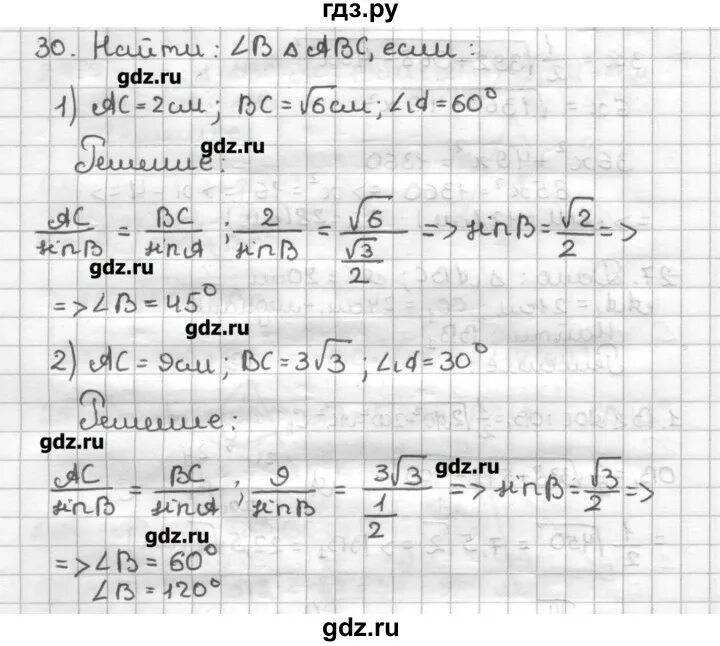 гдз.ру
30. Найти: ∠B △ ABC, если:
gdz.ru
1) AC = 2 см; BC = √6 см; ∠A = 60°
Решение:
gdz.ru
AC/sinB = BC/sinA; 2/sinB = √6/(√3/2) => sinB = √2/2 =>
gdz.ru
=> ∠B = 45°
gdz.ru
2) AC = 9 см; BC = 3√3; ∠A = 30°
Решение:
gdz.ru
AC/sinB = BC/sinA; 9/sinB = 3√3/(1/2) => sinB = √3/2 =>
gdz.ru
gdz.ru
=> ∠B = 60°
∠B = 120°
gdz.ru